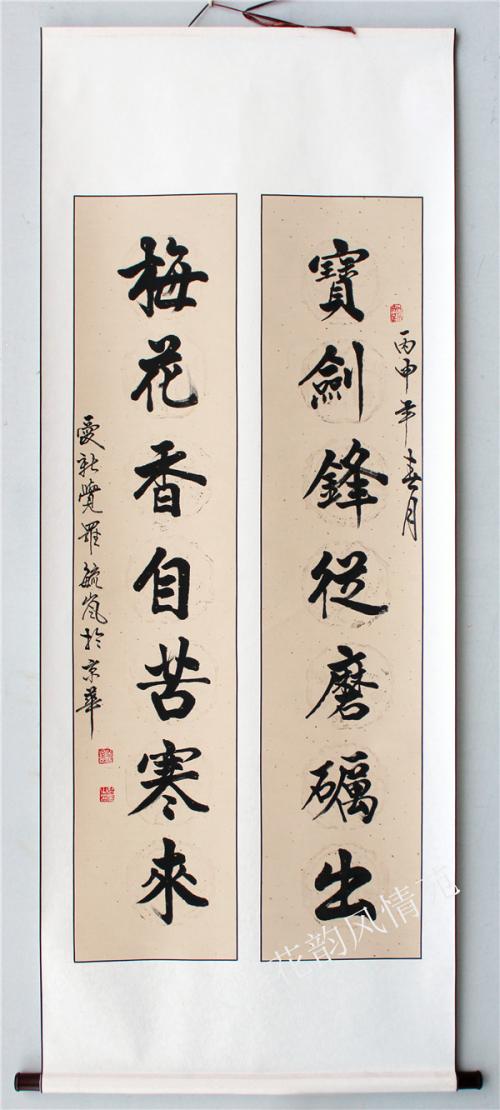 丙申年春月
寶劍鋒從磨礪出
梅花香自苦寒來
愛新覺羅毓嵐於京華
花韵风情苑